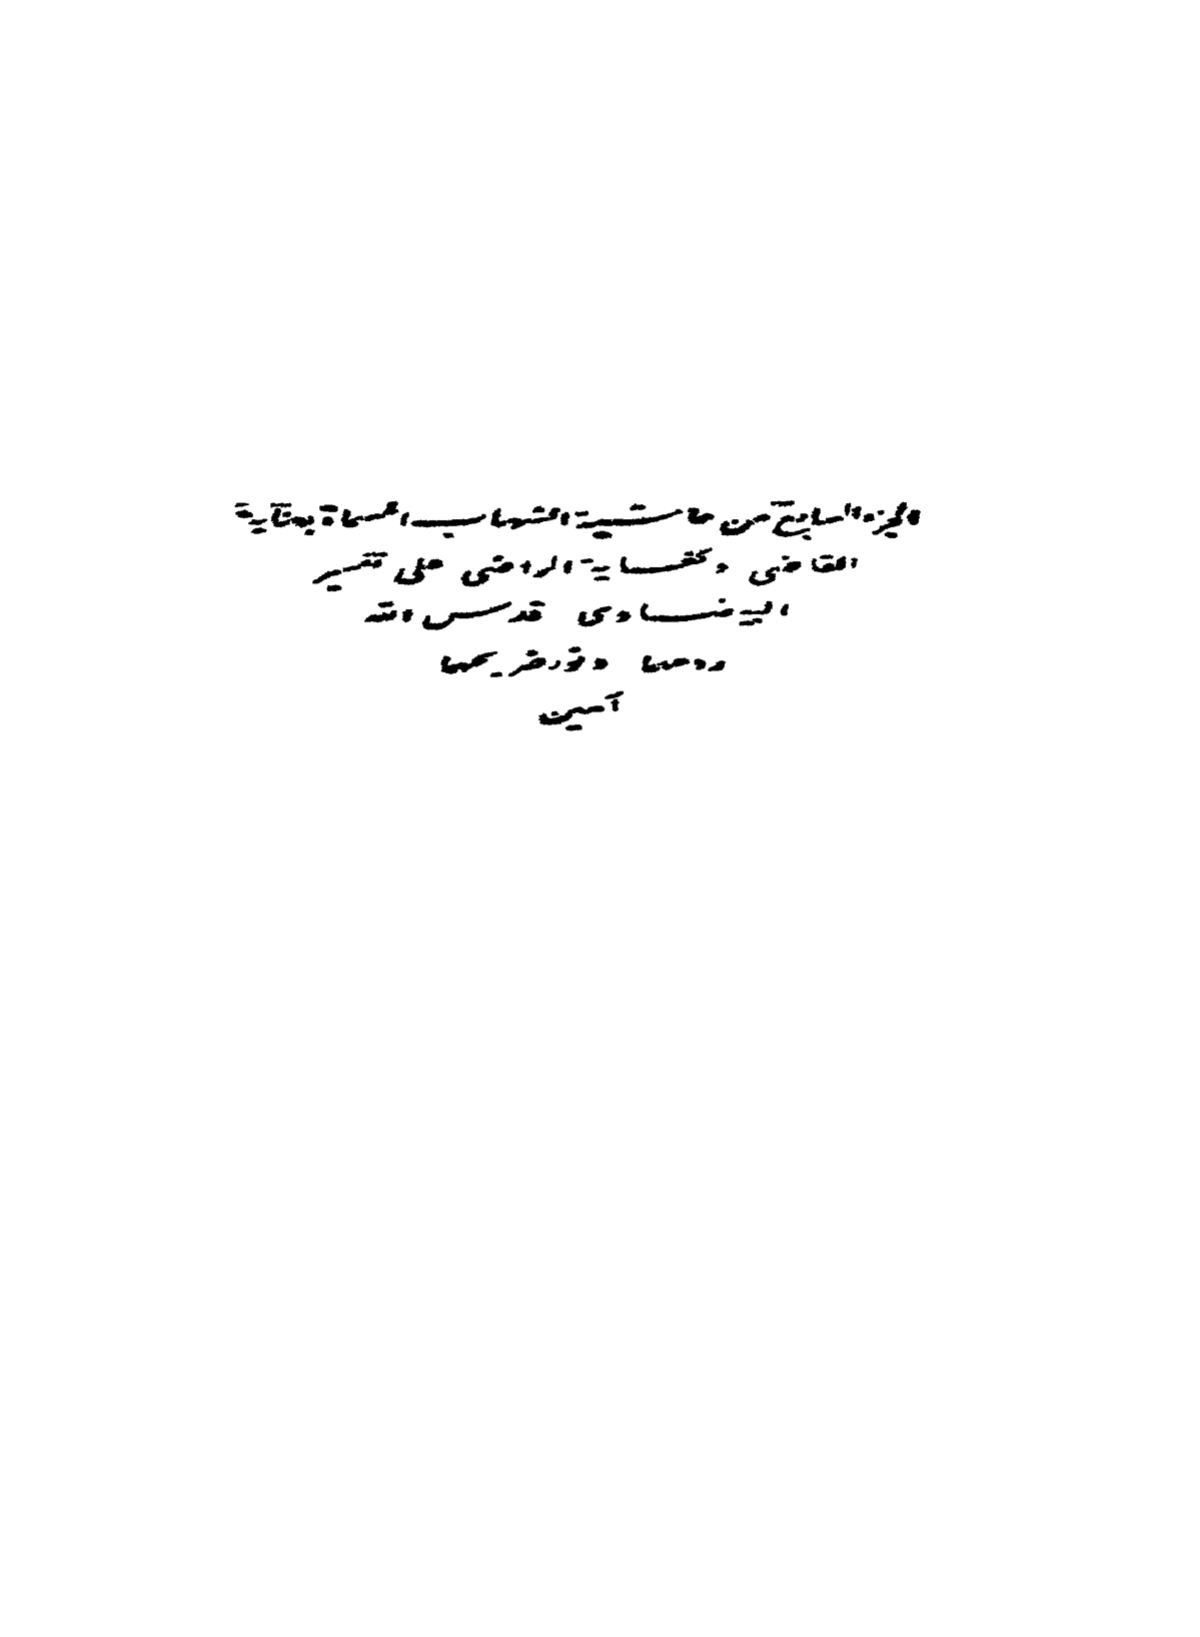 الجزء السابع من حاشية الشهاب المسماة بعناية
القاضى وكفاية الراضى على تفسير
البيضاوى قدس الله
روحهما ونور ضريحهما
آمين